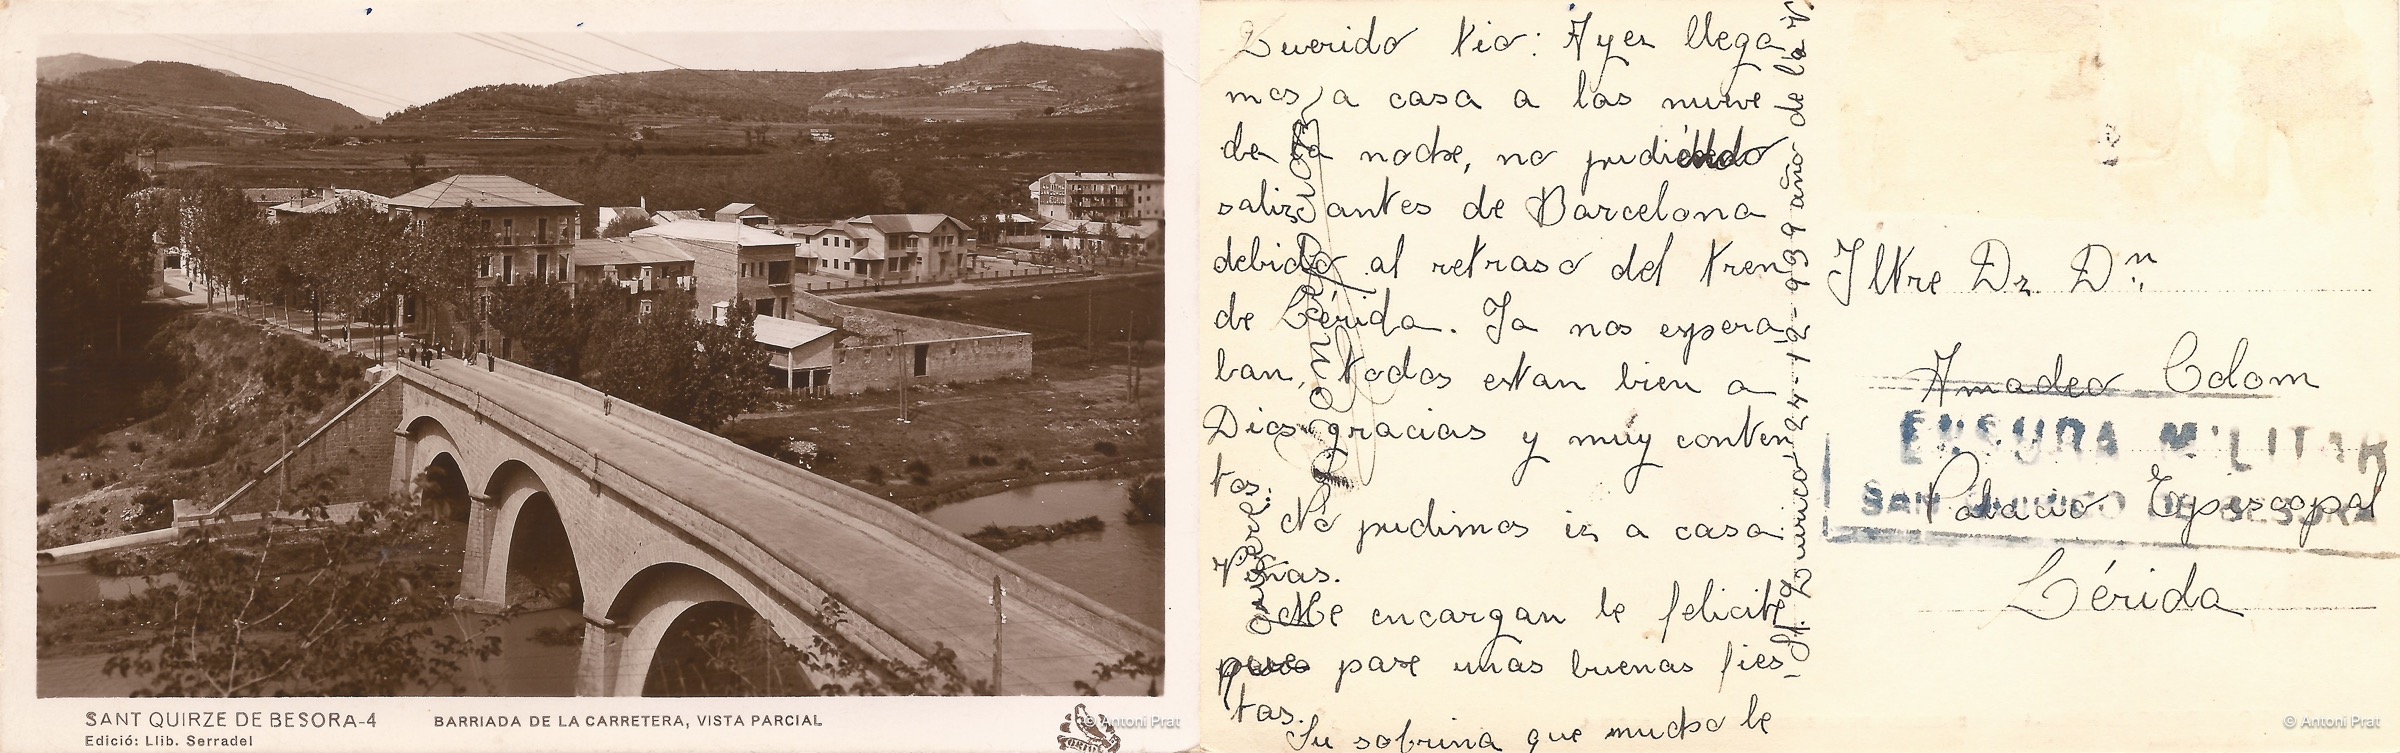 SANT QUIRZE DE BESORA-4
BARRIADA DE LA CARRETERA, VISTA PARCIAL
Edició: Llib. Serradel
© Antoni Prat
Querido tio: Ayer llega
mos a casa a las nueve
de la noche, no pudiendo
salir antes de Barcelona
debido al retraso del tren
de Lérida. Ya nos espera
ban, todos estan bien a
Dios gracias y muy conten
tos.
No pudimos ir a casa
Viñas.
Me encargan le felicite
pase unas buenas fies-
tas.
Su sobrina que mucho le
quiere:
St. Quirico 24-12-939 año de la V
Iltre Dr. Dn
Amadeo Colom
Palacio Episcopal
Lérida
ENSURA MILITAR
SAN QUIRICO DE BESORA
© Antoni Prat